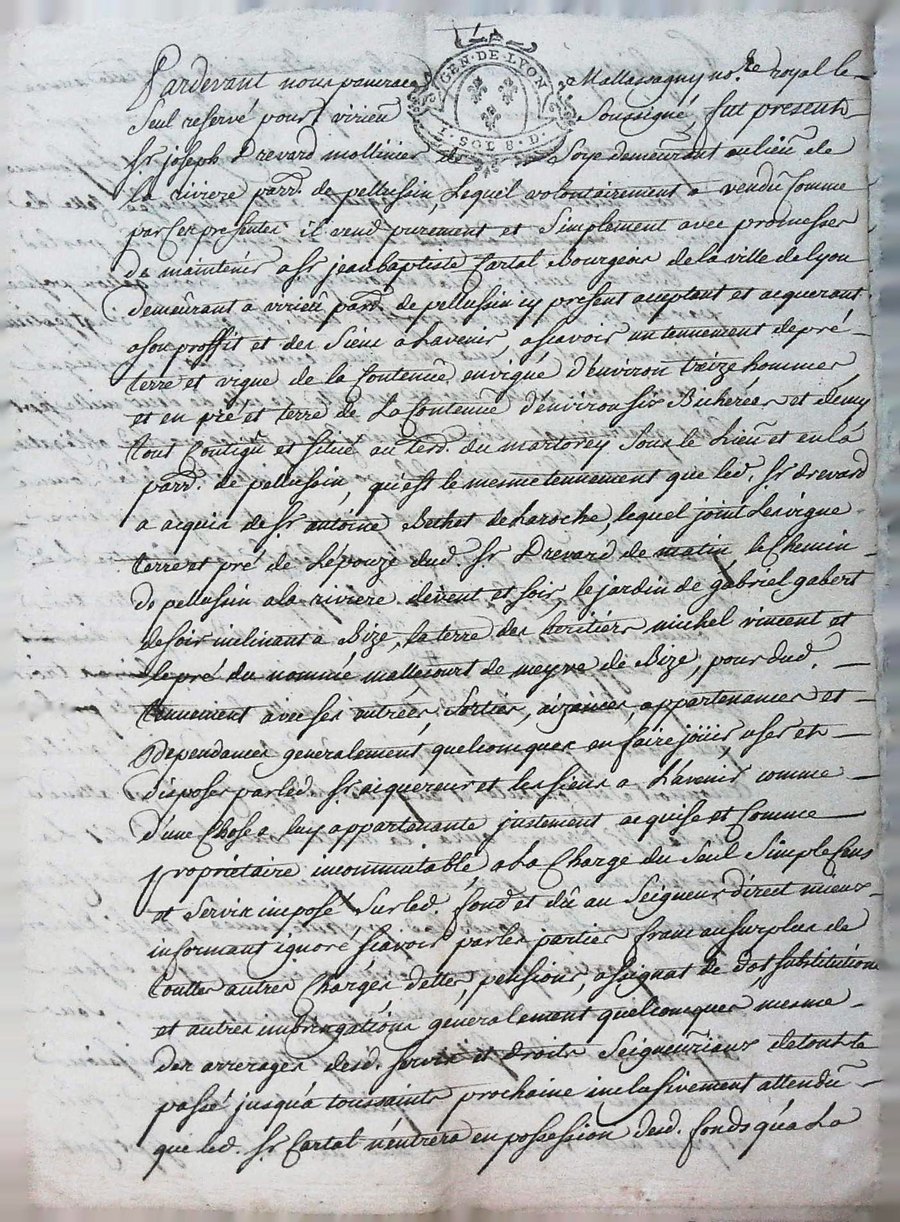 GEN·DE·LYON
1·SOL 8·D·
Pardevant nous pancrace Mallassagny no.re royal le
Seul reservé pour virieu Soussigné, fut present
Sr joseph Drevard mollinier de Soye demeurant au lieu de
la riviere parr. de pellussin, Lequel volontairement a vendu Comme
par Ces presentes il vend purement et Simplement avec promesses
de maintenir a Sr jean baptiste Cartal Bourgeois de la ville de Lyon
demeurant a virieu parr. de pellussin cy present aceptant et acquerant
a son proffit et des Siens a Lavenir, a sçavoir un tennement de pré
terre et vigne de la Contenue en vigne d'environ treize hommes
et en pré et terre de La Contenue d'environ six Bicherées et demy
tout Contigu et situé au terr. du martorey sous le Lieu et en la
parr. de pellussin, qu'est le mesme tennement que led. Sr drevard
a acquis de Sr antoine Bethet de Laroche, lequel joint Les vigne
terre et pré de L'épouze dud. Sr Drevard de matin, le Chemin
de pellussin a la riviere de vent et soir, le jardin de gabriel gabert
de soir inclinant a Bize, la terre des heritiers michel vincent et
le pré du nommé mallecourt de meyve de Bize, pour dud.
tennement avec ses entrées, Sorties, aizances, appartenances et
Dependances generalement quelconques en faire jouir, user et
disposer par led. Sr acquereur et les siens a L'avenir comme
d'une Chose a luy appartenante justement acquise et Comme
propriétaire incommutable, a La Charge du Seul Simple Cens
et Servis imposé Sur led. fond et dû au Seigneur direct mieux
informant ignoré sçavoir par les parties franc au surplus de
touttes autres Charges dettes, pensions, assignat de dot, substitution
et autres imbrigations généralement quelconques mesme
des arrerages desd. Servis et droits Seigneuriaux de tout le
passé jusqu'a toussaints prochaine inclusivement attendu
que led. Sr Cartal n'entrera en possession desd. fonds qu'a La